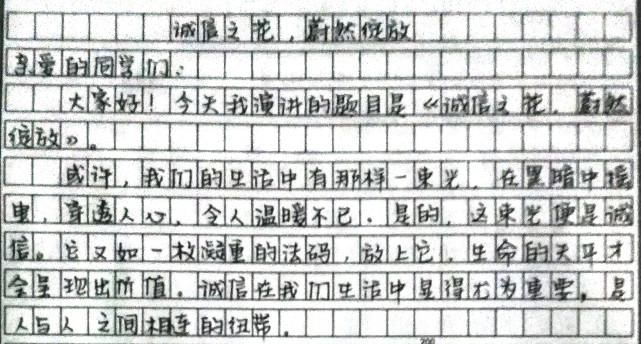 诚信之花，蔚然绽放
亲爱的同学们：
大家好！今天我演讲的题目是《诚信之花，蔚然
绽放》。
或许，我们的生活中有那样一束光，在黑暗中
电，穿透人心，令人温暖不已。是的，这束光便是诚
信。它又如一枚凝重的法码，放上它，生命的天平才
会呈现出价值。诚信在我们生活中显得尤为重要，是
人与人之间相连的纽带。
200